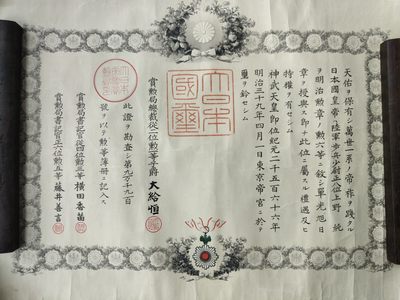 天佑ヲ保有シ萬世一系ノ帝祚ヲ踐タル
日本國皇帝ハ陸軍歩兵少尉正八位上野 統
ヲ明治勲章ノ勲六等ニ敍シ單光旭日
章ヲ授與ス即チ此位ニ屬スル禮遇及ヒ
特權ヲ有セシム
神武天皇即位紀元二千五百六十六年
明治三十九年四月一日東京帝宮ニ於テ
璽ヲ鈐セシム
大日本
國璽
賞勲局總裁從二位勲一等子爵 大給恒
此證ヲ勘査シ第九万千九百
號ヲ以テ勲等簿冊ニ記入ス
賞勲局書記官從四位勲三等 横田香苗
賞勲局書記官正六位勲五等 藤井善言